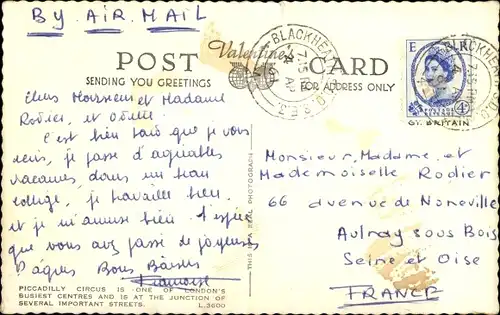 BY AIR MAIL
POST CARD
Valentine's
SENDING YOU GREETINGS
FOR ADDRESS ONLY
BLACKHEATH
7.15 PM
S.E.3.
E R
4D
POSTAGE REVENUE
GT. BRITAIN
Chers Monsieur et Madame
Rodier, et Odile
C'est bien tard que je vous
écris, je passe d'agréables
vacances, dans un beau
collège, je travaille bien
et je m'amuse bien. J'espère
que vous avez passé de joyeuses
Pâques Bons Baisers
Françoise
Monsieur, Madame, et
Mademoiselle Rodier
66 avenue de Noneville
Aulnay sous Bois
Seine et Oise
FRANCE
THIS IS A REAL PHOTOGRAPH
PICCADILLY CIRCUS IS ONE OF LONDON'S
BUSIEST CENTRES AND IS AT THE JUNCTION OF
SEVERAL IMPORTANT STREETS. L.3600